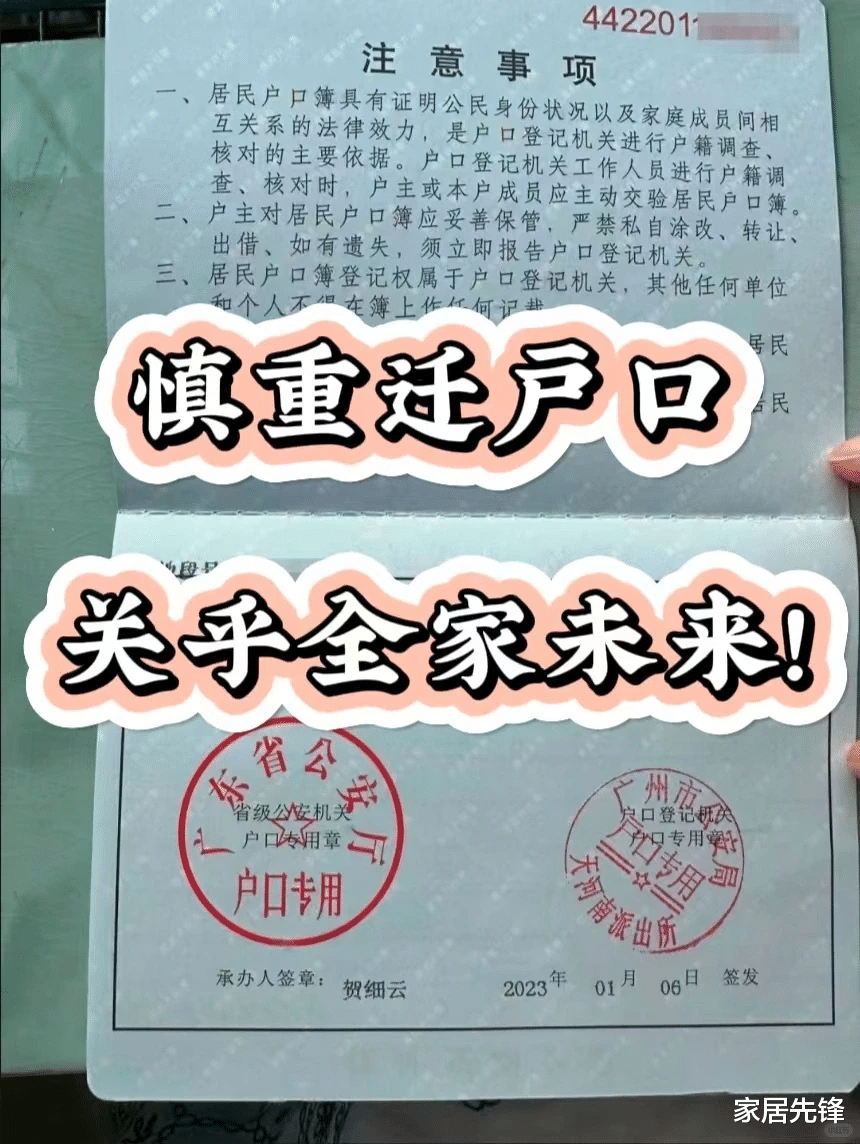 442201
注意事项
一、居民户口簿具有证明公民身份状况以及家庭成员间相
互关系的法律效力，是户口登记机关进行户籍调查、
核对的主要依据。户口登记机关工作人员进行户籍调
查、核对时，户主或本户成员应主动交验居民户口簿。
二、户主对居民户口簿应妥善保管，严禁私自涂改、转让、
出借、如有遗失，须立即报告户口登记机关。
三、居民户口簿登记权属于户口登记机关，其他任何单位
和个人不得在簿上作任何记载
居民
慎重迁户口
居民
关乎全家未来！
广东省公安厅
省级公安机关
户口专用章
户口专用
广州市公安局
户口登记机关
户口专用章
户口专用
天河南派出所
承办人签章：贺细云 2023年 01月 06日 签发
家居先锋